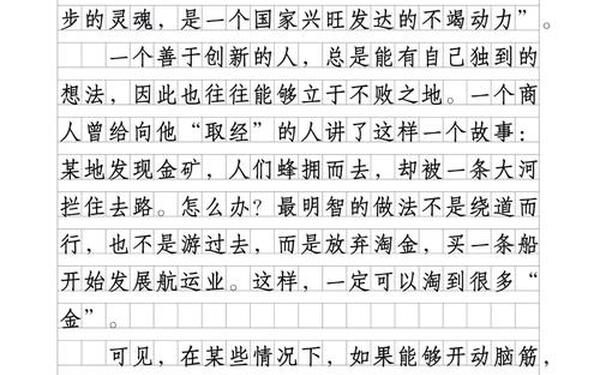 步的灵魂，是一个国家兴旺发达的不竭动力”。
一个善于创新的人，总是能有自己独到的
想法，因此也往往能够立于不败之地。一个商
人曾给向他“取经”的人讲了这样一个故事：
某地发现金矿，人们蜂拥而去，却被一条大河
拦住去路。怎么办？最明智的做法不是绕道而
行，也不是游过去，而是放弃淘金，买一条船
开始发展航运业。这样，一定可以淘到很多“
金”。
可见，在某些情况下，如果能够开动脑筋，